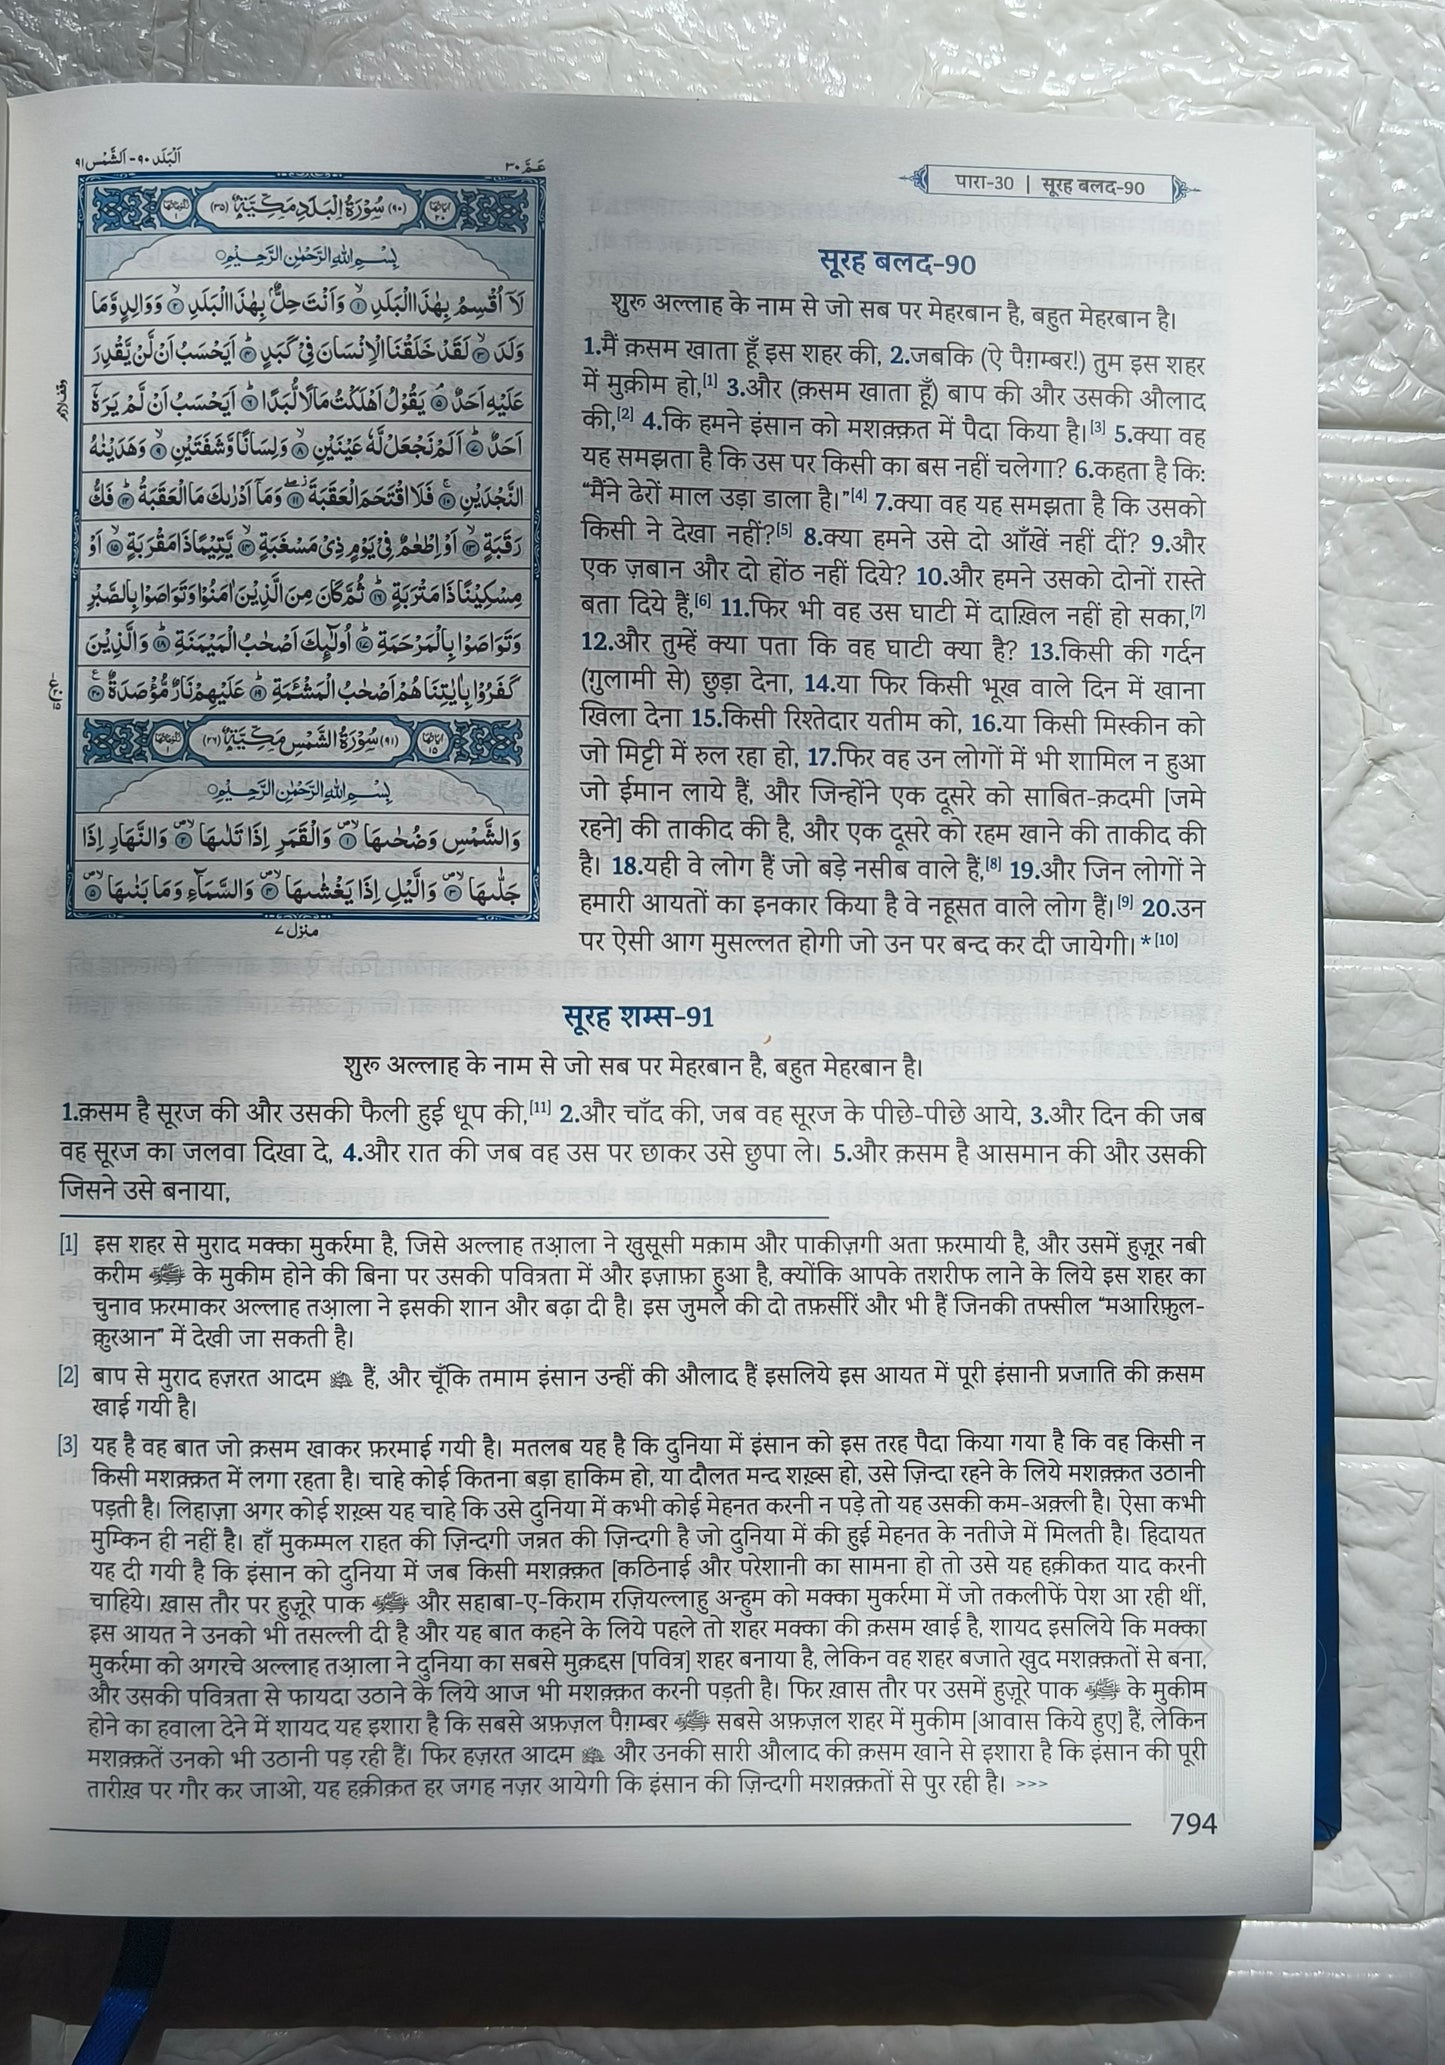 اَلْبَلَد ٩٠ - اَلشَّمْس ٩١
عَمَّ ٣٠
पारा-30 | सूरह बलद-90
(٩٠) سُوْرَةُ الْبَلَدِ مَكِّيَّةٌ (٣٥)
بِسْمِ اللهِ الرَّحْمٰنِ الرَّحِيْمِ
لَآ اُقْسِمُ بِهٰذَا الْبَلَدِ ١ وَاَنْتَ حِلٌّۢ بِهٰذَا الْبَلَدِ ٢ وَوَالِدٍ وَّمَا
وَلَدَ ٣ لَقَدْ خَلَقْنَا الْاِنْسَانَ فِيْ كَبَدٍ ٤ اَيَحْسَبُ اَنْ لَّنْ يَّقْدِرَ
عَلَيْهِ اَحَدٌ ٥ يَقُوْلُ اَهْلَكْتُ مَالًا لُّبَدًا ٦ اَيَحْسَبُ اَنْ لَّمْ يَرَهٗٓ
اَحَدٌ ٧ اَلَمْ نَجْعَلْ لَّهٗ عَيْنَيْنِ ٨ وَلِسَانًا وَّشَفَتَيْنِ ٩ وَهَدَيْنٰهُ
النَّجْدَيْنِ ١٠ فَلَا اقْتَحَمَ الْعَقَبَةَ ١١ وَمَآ اَدْرٰىكَ مَا الْعَقَبَةُ ١٢ فَكُّ
رَقَبَةٍ ١٣ اَوْ اِطْعٰمٌ فِيْ يَوْمٍ ذِيْ مَسْغَبَةٍ ١٤ يَّتِيْمًا ذَا مَقْرَبَةٍ ١٥ اَوْ
مِسْكِيْنًا ذَا مَتْرَبَةٍ ١٦ ثُمَّ كَانَ مِنَ الَّذِيْنَ اٰمَنُوْا وَتَوَاصَوْا بِالصَّبْرِ
وَتَوَاصَوْا بِالْمَرْحَمَةِ ١٧ اُولٰٓئِكَ اَصْحٰبُ الْمَيْمَنَةِ ١٨ وَالَّذِيْنَ
كَفَرُوْا بِاٰيٰتِنَا هُمْ اَصْحٰبُ الْمَشْئَمَةِ ١٩ عَلَيْهِمْ نَارٌ مُّؤْصَدَةٌ ٢٠
(٩١) سُوْرَةُ الشَّمْسِ مَكِّيَّةٌ (٢٦)
بِسْمِ اللهِ الرَّحْمٰنِ الرَّحِيْمِ
وَالشَّمْسِ وَضُحٰىهَا ١ وَالْقَمَرِ اِذَا تَلٰىهَا ٢ وَالنَّهَارِ اِذَا
جَلّٰىهَا ٣ وَالَّيْلِ اِذَا يَغْشٰىهَا ٤ وَالسَّمَآءِ وَمَا بَنٰىهَا ٥
منزل ٧
सूरह बलद-90
शुरू अल्लाह के नाम से जो सब पर मेहरबान है, बहुत मेहरबान है।
1.मैं क़सम खाता हूँ इस शहर की, 2.जबकि (ऐ पैग़म्बर!) तुम इस शहर
में मुक़ीम हो,[1] 3.और (क़सम खाता हूँ) बाप की और उसकी औलाद
की,[2] 4.कि हमने इंसान को मशक़्क़त में पैदा किया है।[3] 5.क्या वह
यह समझता है कि उस पर किसी का बस नहीं चलेगा? 6.कहता है कि:
“मैंने ढेरों माल उड़ा डाला है।”[4] 7.क्या वह यह समझता है कि उसको
किसी ने देखा नहीं?[5] 8.क्या हमने उसे दो आँखें नहीं दीं? 9.और
एक ज़बान और दो होंठ नहीं दिये? 10.और हमने उसको दोनों रास्ते
बता दिये हैं,[6] 11.फिर भी वह उस घाटी में दाख़िल नहीं हो सका,[7]
12.और तुम्हें क्या पता कि वह घाटी क्या है? 13.किसी की गर्दन
(ग़ुलामी से) छुड़ा देना, 14.या फिर किसी भूख वाले दिन में खाना
खिला देना 15.किसी रिश्तेदार यतीम को, 16.या किसी मिस्कीन को
जो मिट्टी में रुल रहा हो, 17.फिर वह उन लोगों में भी शामिल न हुआ
जो ईमान लाये हैं, और जिन्होंने एक दूसरे को साबित-क़दमी [जमे
रहने] की ताकीद की है, और एक दूसरे को रहम खाने की ताकीद की
है। 18.यही वे लोग हैं जो बड़े नसीब वाले हैं,[8] 19.और जिन लोगों ने
हमारी आयतों का इनकार किया है वे नहूसत वाले लोग हैं।[9] 20.उन
पर ऐसी आग मुसल्लत होगी जो उन पर बन्द कर दी जायेगी। *[10]
सूरह शम्स-91
शुरू अल्लाह के नाम से जो सब पर मेहरबान है, बहुत मेहरबान है।
1.क़सम है सूरज की और उसकी फैली हुई धूप की,[11] 2.और चाँद की, जब वह सूरज के पीछे-पीछे आये, 3.और दिन की जब
वह सूरज का जलवा दिखा दे, 4.और रात की जब वह उस पर छाकर उसे छुपा ले। 5.और क़सम है आसमान की और उसकी
जिसने उसे बनाया,
[1] इस शहर से मुराद मक्का मुकर्रमा है, जिसे अल्लाह तआ़ला ने ख़ुसूसी मक़ाम और पाकीज़गी अता फ़रमायी है, और उसमें हुज़ूर नबी
करीम ﷺ के मुकीम होने की बिना पर उसकी पवित्रता में और इज़ाफ़ा हुआ है, क्योंकि आपके तशरीफ लाने के लिये इस शहर का
चुनाव फ़रमाकर अल्लाह तआ़ला ने इसकी शान और बढ़ा दी है। इस जुमले की दो तफ़सीरें और भी हैं जिनकी तफ्सील “मआरिफ़ुल-
क़ुरआन” में देखी जा सकती है।
[2] बाप से मुराद हज़रत आदम हैं, और चूँकि तमाम इंसान उन्हीं की औलाद हैं इसलिये इस आयत में पूरी इंसानी प्रजाति की क़सम
खाई गयी है।
[3] यह है वह बात जो क़सम खाकर फ़रमाई गयी है। मतलब यह है कि दुनिया में इंसान को इस तरह पैदा किया गया है कि वह किसी न
किसी मशक़्क़त में लगा रहता है। चाहे कोई कितना बड़ा हाकिम हो, या दौलत मन्द शख़्स हो, उसे ज़िन्दा रहने के लिये मशक़्क़त उठानी
पड़ती है। लिहाज़ा अगर कोई शख़्स यह चाहे कि उसे दुनिया में कभी कोई मेहनत करनी न पड़े तो यह उसकी कम-अक़्ली है। ऐसा कभी
मुम्किन ही नहीं है। हाँ मुकम्मल राहत की ज़िन्दगी जन्नत की ज़िन्दगी है जो दुनिया में की हुई मेहनत के नतीजे में मिलती है। हिदायत
यह दी गयी है कि इंसान को दुनिया में जब किसी मशक़्क़त [कठिनाई और परेशानी का सामना हो तो उसे यह हक़ीकत याद करनी
चाहिये। ख़ास तौर पर हुज़ूरे पाक ﷺ और सहाबा-ए-किराम रज़ियल्लाहु अन्हुम को मक्का मुकर्रमा में जो तकलीफें पेश आ रही थीं,
इस आयत ने उनको भी तसल्ली दी है और यह बात कहने के लिये पहले तो शहर मक्का की क़सम खाई है, शायद इसलिये कि मक्का
मुकर्रमा को अगरचे अल्लाह तआ़ला ने दुनिया का सबसे मुक़द्दस [पवित्र] शहर बनाया है, लेकिन वह शहर बजाते ख़ुद मशक़्क़तों से बना,
और उसकी पवित्रता से फायदा उठाने के लिये आज भी मशक़्क़त करनी पड़ती है। फिर ख़ास तौर पर उसमें हुज़ूरे पाक ﷺ के मुकीम
होने का हवाला देने में शायद यह इशारा है कि सबसे अफ़ज़ल पैग़म्बर ﷺ सबसे अफ़ज़ल शहर में मुकीम [आवास किये हुए] हैं, लेकिन
मशक़्क़तें उनको भी उठानी पड़ रही हैं। फिर हज़रत आदम और उनकी सारी औलाद की क़सम खाने से इशारा है कि इंसान की पूरी
तारीख़ पर गौर कर जाओ, यह हक़ीक़त हर जगह नज़र आयेगी कि इंसान की ज़िन्दगी मशक़्क़तों से पुर रही है। >>>
794